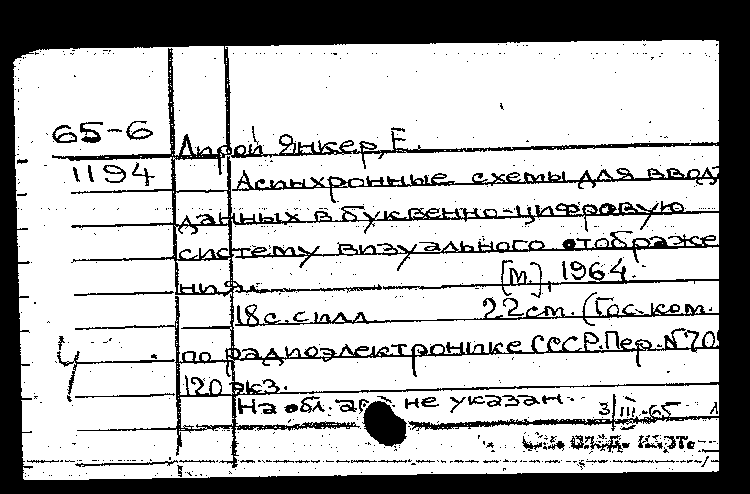 65-6
Лирой Янкер, Е.
1194 Асинхронные схемы для ввод
данных в буквенно-цифровую
систему визуального отображе
ния.
[М.], 1964.
18 с. с илл 22 см. (Гос. ком.
по радиоэлектронике СССР. Пер. №70
120 экз.
На обл. авт не указан.
3/III-65
См. след. карт.